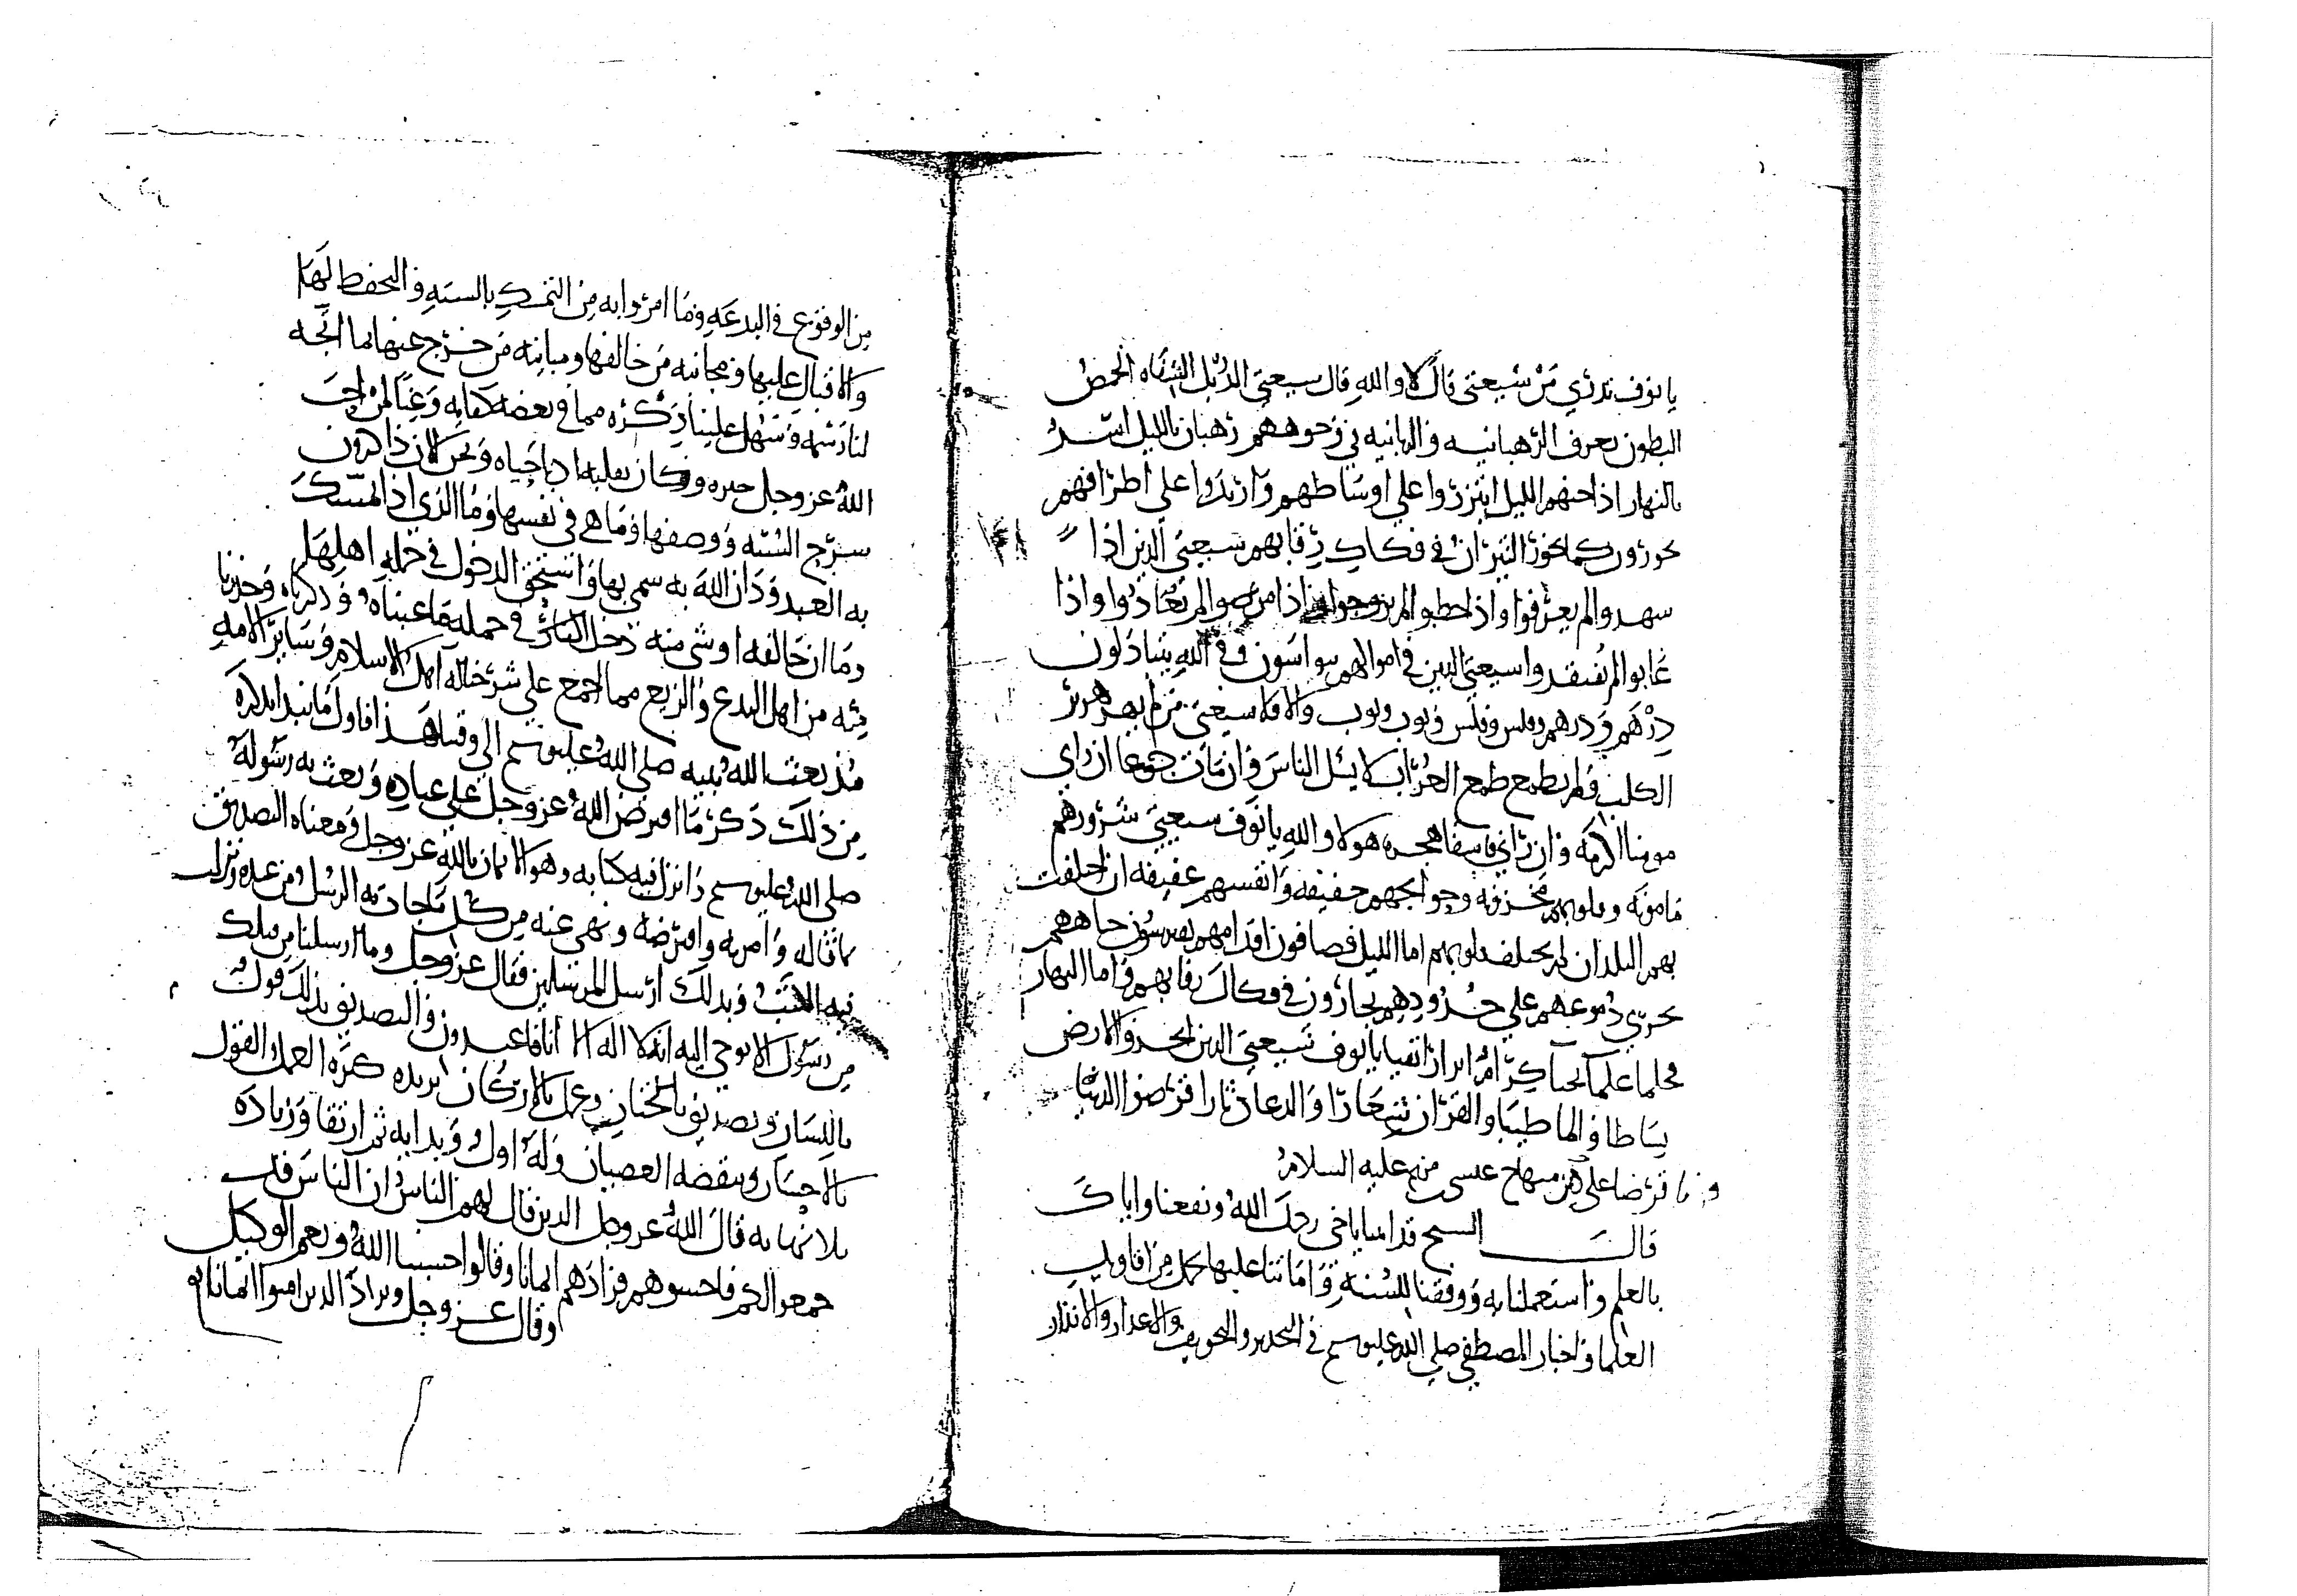 يا نوف تدري من شيعتي قال لا والله قال شيعتي الذبل الشفاه الخمص
البطون تعرف الرهبانيه والربانيه في وجوههم رهبان بالليل اسد
بالنهار اذا جنهم الليل اتزروا علي اوساطهم وارتدوا علي اطرافهم
يخورون كما تخور الثيران في فكاك رقابهم شيعتي الذين اذا
شهدوا لم يعرفوا واذا خطبوا لم يزوجوا واذا مرضوا لم يعادوا واذا
غابوا لم يفتقدوا شيعتي الذين في اموالهم يتواسون وفي الله يتباذلون
درهم ودرهم وفلس وفلس وثوب وثوب والا فلا شيعتي من لم يهر هرير
الكلب ولم يطمع طمع الغراب لا يسل الناس وان مات جوعا ان راي
مومنا اكرمه وان راي فاسقا هجره هولا والله يا نوف شيعتي شرورهم
مامونه وقلوبهم محزونه وحوايجهم خفيفه وانفسهم عفيفه ان اختلفت
بهم البلدان لم تختلف قلوبهم اما الليل فصافون اقدامهم يفترشون جباههم
تجري دموعهم علي خدودهم يجارون في فكاك رقابهم واما النهار
فحلما علما نجبا كرام ابرار اتقيا يا نوف شيعتي الذين اتخذوا الارض
بساطا والما طيبا والقران شعارا والدعا دثارا قرضوا الدنيا
قرضا علي منهاج عيسي بن مريم عليه السلام
قال الشيخ قد اتينا يا اخي رحمك الله ونفعنا واياك
بالعلم واستعملنا به ووفقنا للسنة واماتنا عليها بجمل من اقاويل
العلما واخبار المصطفي صلي الله عليه وسلم في التحذير والتخويف والاعذار والانذار
من الوقوع في البدعه وما امروا به من التمسك بالسنه والتحفظ لها
والاقبال عليها ومجانبه من خالفها ومباينه من خرج عنها ما اتجه
لنا رسمه وسهل علينا ذكره مما في بعضه كفايه وغنا لمن احب
الله عز وجل خيره وكان بقلبه ادنا حياه ونحن الان ذاكرون
شرح السنه ووصفها وما هي في نفسها وما الذي اذا تمسك
به العبد ودان الله به سمي بها واستحق الدخول في جملة اهلها
وما ان خالفه او شي منه دخل في جمله ما عبناه وذكرناه وحذرنا
منه من اهل البدع والزيغ مما اجمع علي شرحنا له اهل الاسلام وساير الامه
مذ بعث الله نبيه صلي الله عليه وسلم الي وقتنا هذا فاول ما نبدا بذكره
من ذلك ذكر ما افترض الله عز وجل علي عباده وبعث به رسوله
صلي الله عليه وسلم وانزل فيه كتابه وهو الايمان بالله عز وجل ومعناه التصديق
بما قاله وامر به وافترضه ونهي عنه من كل ما جات به الرسل من عنده ونزلت
فيه الكتب وبذلك ارسل المرسلين فقال عز وجل وما ارسلنا من قبلك
من رسول الا نوحي اليه انه لا اله الا انا فاعبدون والتصديق بذلك قول
باللسان وتصديق بالجنان وعمل بالاركان يزيده كثره العمل والقول
بالاحسان وينقصه العصيان وله اول وبدايه ثم ارتقا وزياده
بلا نهايه قال الله عز وجل الذين قال لهم الناس ان الناس قد
جمعوا لكم فاخشوهم فزادهم ايمانا وقالوا حسبنا الله ونعم الوكيل
وقال عز وجل ويزداد الذين امنوا ايمانا